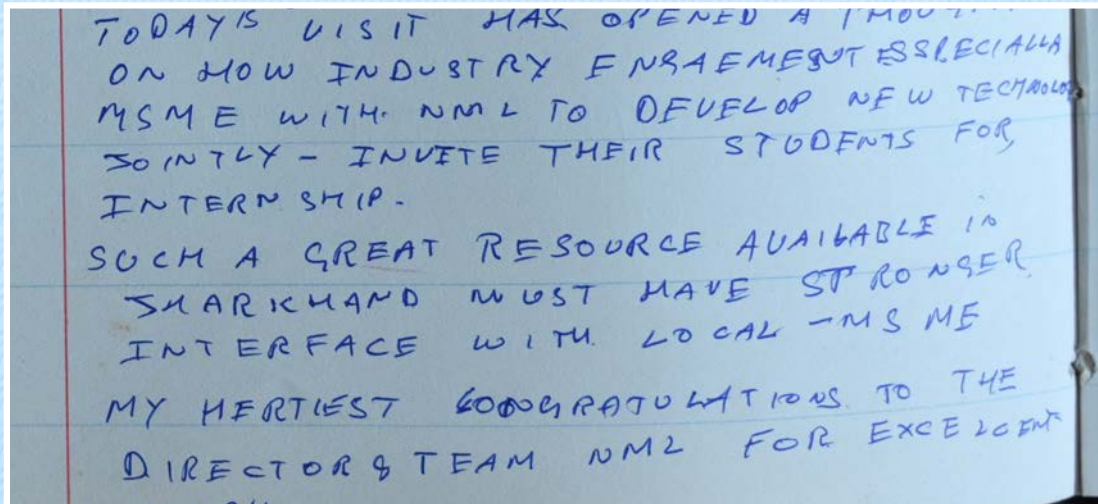 TODAY'S VISIT HAS OPENED A
ON HOW INDUSTRY ENGAEMENT ESSPECIALLA
MSME WITH NML TO DEVELOP NEW TECHNOLO
JOINTLY - INVITE THEIR STUDENTS FOR
INTERN SHIP.
SUCH A GREAT RESOURCE AVAILABLE IN
JHARKHAND MUST HAVE STRONGER
INTERFACE WITH LOCAL - MSME
MY HERTIEST CONGRATULATIONS TO THE
DIRECTOR & TEAM NML FOR EXCELCENT